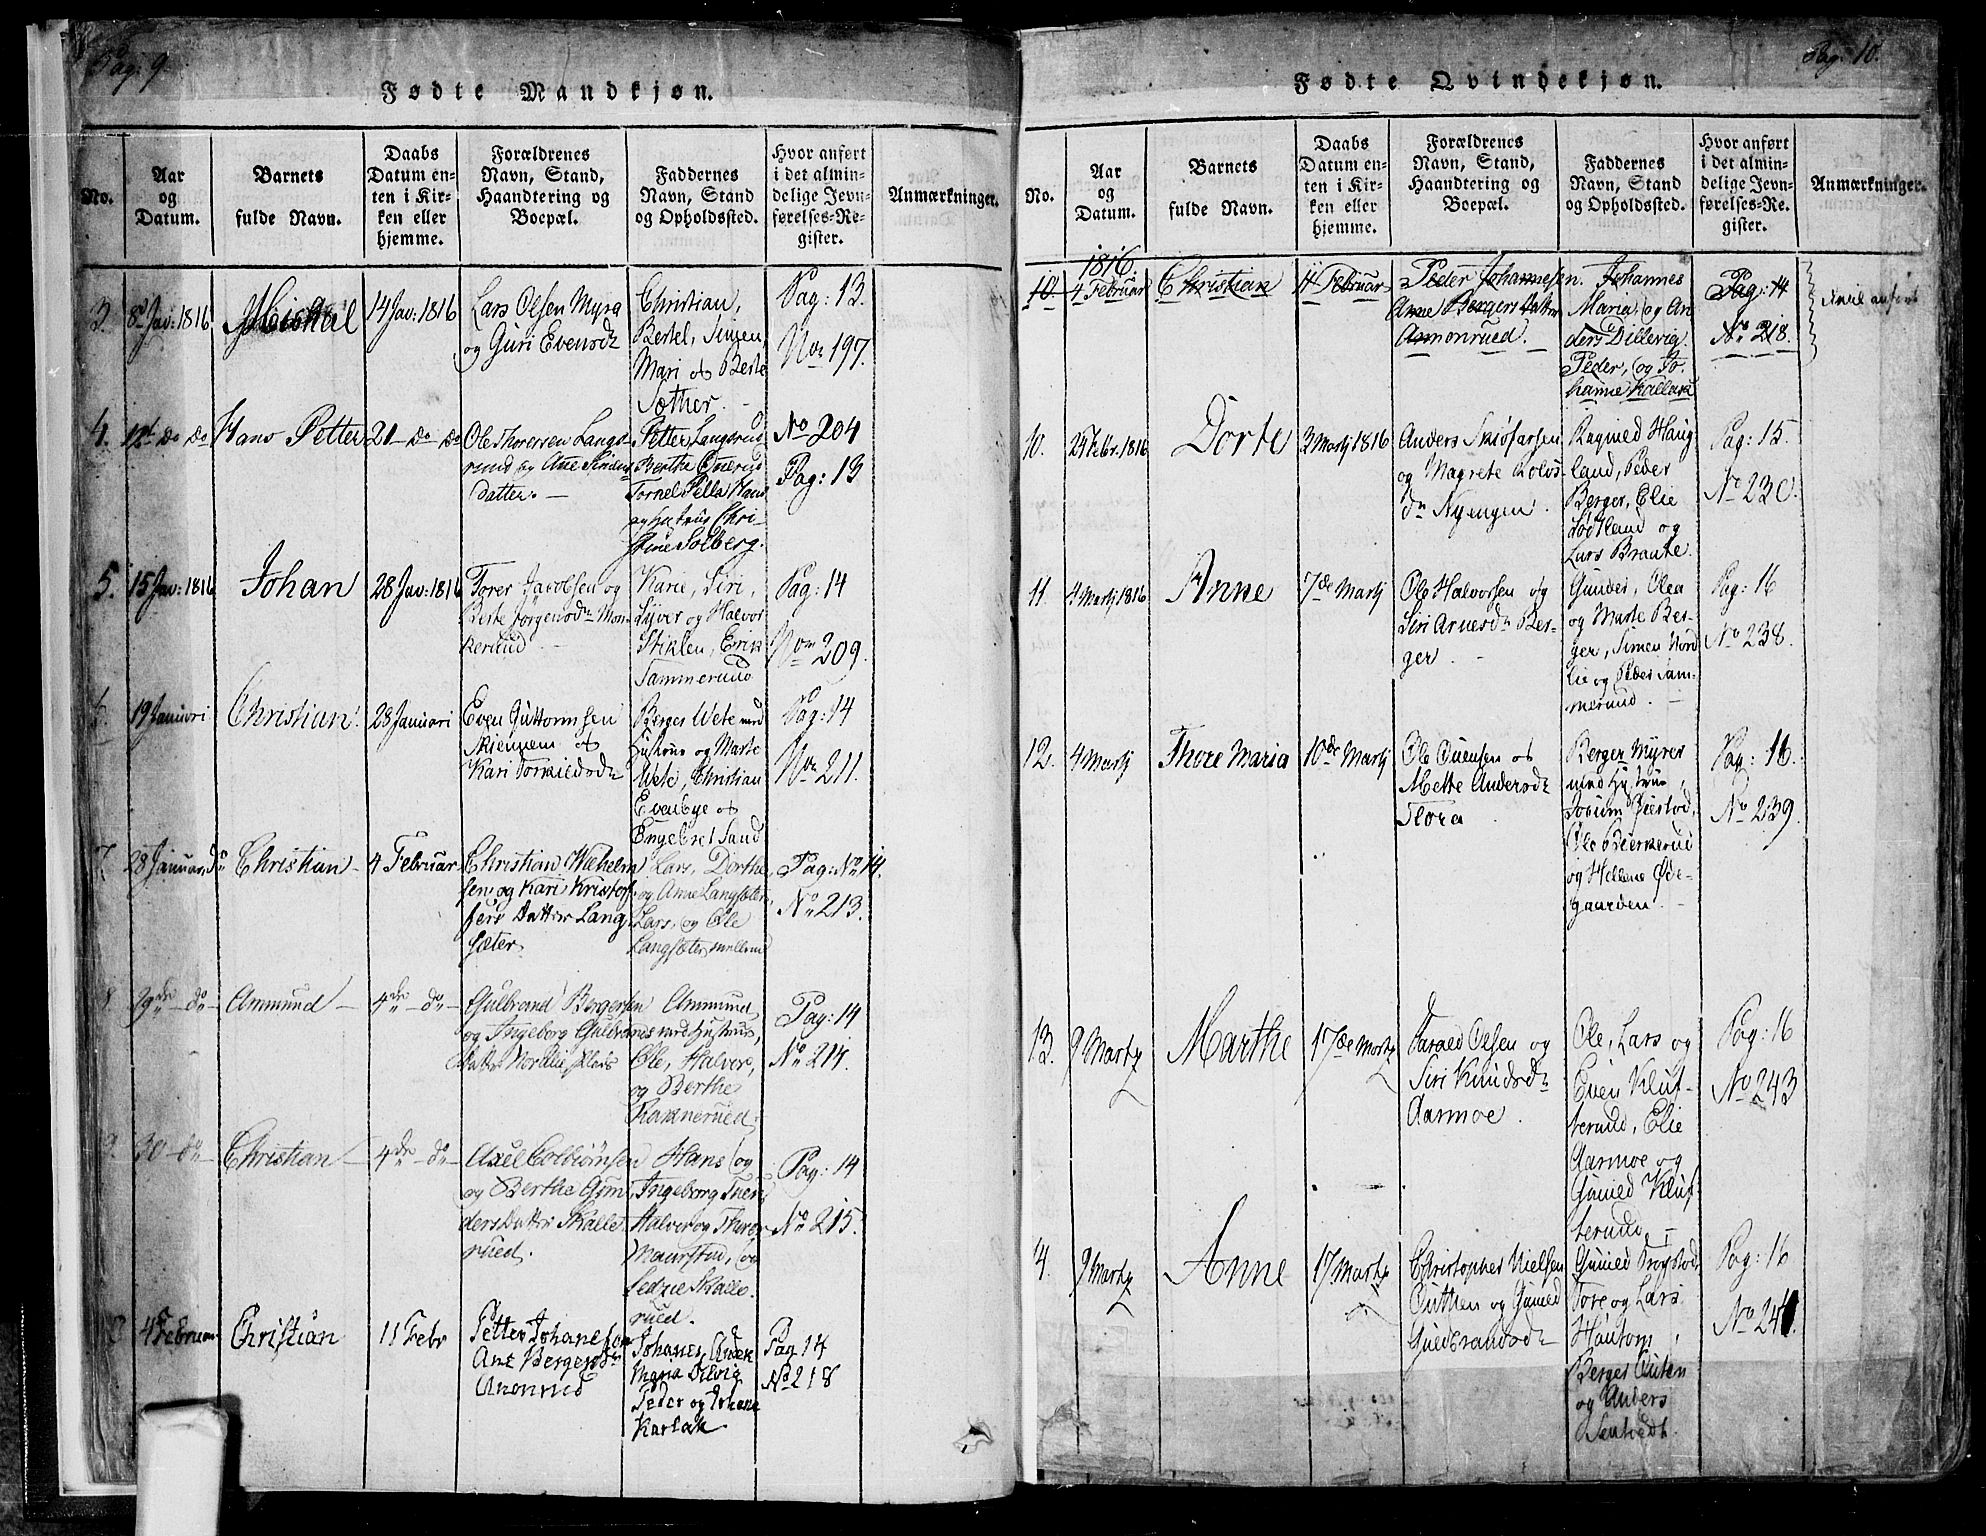 Pag: 9
Fødte Mandkjøn.
No.
Aar
og
Datum.
Barnets
fulde Navn.
Daabs
Datum en-
ten i Kir-
ken eller
hjemme.
Forældrenes
Navn, Stand,
Haandtering og
Boepæl.
Faddernes
Navn, Stand
og Opholdssted.
Hvor anført
i det almin-
delige Jevn-
førelses-Re-
gister.
Anmærkninger.
3.
8de Jav: 1816
14 Jav: 1816
Lars Olsen Myra
og Guri Evensdr
Christian,
Bertel, Simen
Mari og Berte
Sæther.
Pag: 13.
No 197.
4.
12te do do
Hans Petter
21 do do
Ole Thoresen Langs
rund og Ane
datter.
Petter Langsrud
Berthe
Hans
og hustrue Chri-
stine Solberg.
No 204
Pag: 13
5.
15 Jav: 1816
Johan
28 Jav: 1816
Torer Jacobsen og
Berte Jørgensdr Mon-
kerund
Karie, Siri,
Syver og Halvor
Stiklen, Erik
Tammerud
Pag: 14
No 209.
6.
19 Januari
Christian
28 Januari
Even Guttormsen
Skiennem og
Kari Torkieldsdr
Berger Wete med
Hustrue og Marte
Wete, Christian
Evenbye og
Engebret Sand
Pag: 14
No 211.
7.
28 Januar do
Christian
4 Februar
Christian Wilhelm
sen og Kari Kristof-
fers Datter Lang
sæter
Lars, Dorthe,
og Anne Langsæter,
Lars, og Ole
Langsæter mellem
Pag: No 14.
No 213.
8.
29de do
Ammund
4de do
Gulbrand Bergersen
og Ingeborg Gulbrands
Datter Nordlie
Ammund
med Hustrue,
Ole, Halvor,
og Berthe
Raknerued.
Pag: 14
No 214.
9.
30 do
Christian
4de do
Axel Colbiønsen
og Berthe Gun
ders Datter Skalle
rued.
Hans og
Ingeborg
Halvor og Thore
Maurstad, og
Skalle
rued.
Pag: 14
No 215.
4 Februar
Christian
11 Febr
Petter Johanesen
Ane Bergersdr
Amonrud
Johanes Anders
Maria Dilvig
Peder og Johane
Karlak
Pag 14
No 218
Pag: 10.
Fødte Qvindekjøn.
No.
Aar
og
Datum.
Barnets
fulde Navn.
Daabs
Datum en-
ten i Kir-
ken eller
hjemme.
Forældrenes
Navn, Stand,
Haandtering og
Boepæl.
Faddernes
Navn, Stand
og Opholdssted.
Hvor anført
i det almin-
delige Jevn-
førelses-Re-
gister.
Anmærkninger.
1816.
10.
4 Februar
Christian
11 Februar
Peder Johannesen
Anne Bergers Datter
Amonrued.
Johannes
Maria, og An
ders Dillevig
Peder, og Jo-
hanne Kallack
Pag: 14
No 218.
anført
10.
25 Febr. 1816
Dorte
3 Martj 1816
Anders Skiøfarsen
og Magrete Kolvs-
dr Nyengen
Ragned Haug
land, Peder
Berger, Elie
Lodtland og
Lars Braate
Pag: 15.
No 230.
11.
4 Martj 1816
Anne
7de Martj
Ole Halvorsen og
Siri Arnesdr Ber-
ger
Gunder, Olea
og Marte Ber-
ger, Simen Nord
lie og Peder Tam-
merund.
Pag: 16
No 238.
12.
4 Martj
Thore Maria
10de Martj
Ole Ouensen og
Mette Andersdr
Flora
Berger Myrer
med Hustrue,
Jorum
Ole Bierkerud
og Hellene Øde-
gaarden.
Pag: 16.
No 239.
13.
9 Marty
Marthe
17de Marty
Harald Olsen og
Siri Knudsdr
Aarmoe
Ole, Lars og
Even Kluf-
terund, Elie
Aarmoe og
Guned Kluf-
terund,
Pag: 16
No 243
14.
9 Marty
Anne
17 Marty
Christopher Nielsen
Outhen og Guned
Guldbrandsdr
Guned Trøgstad
Tore og Lars
Hautom,
Berger Outen
og Anders
Sentvedt.
Pag: 16
No 244.